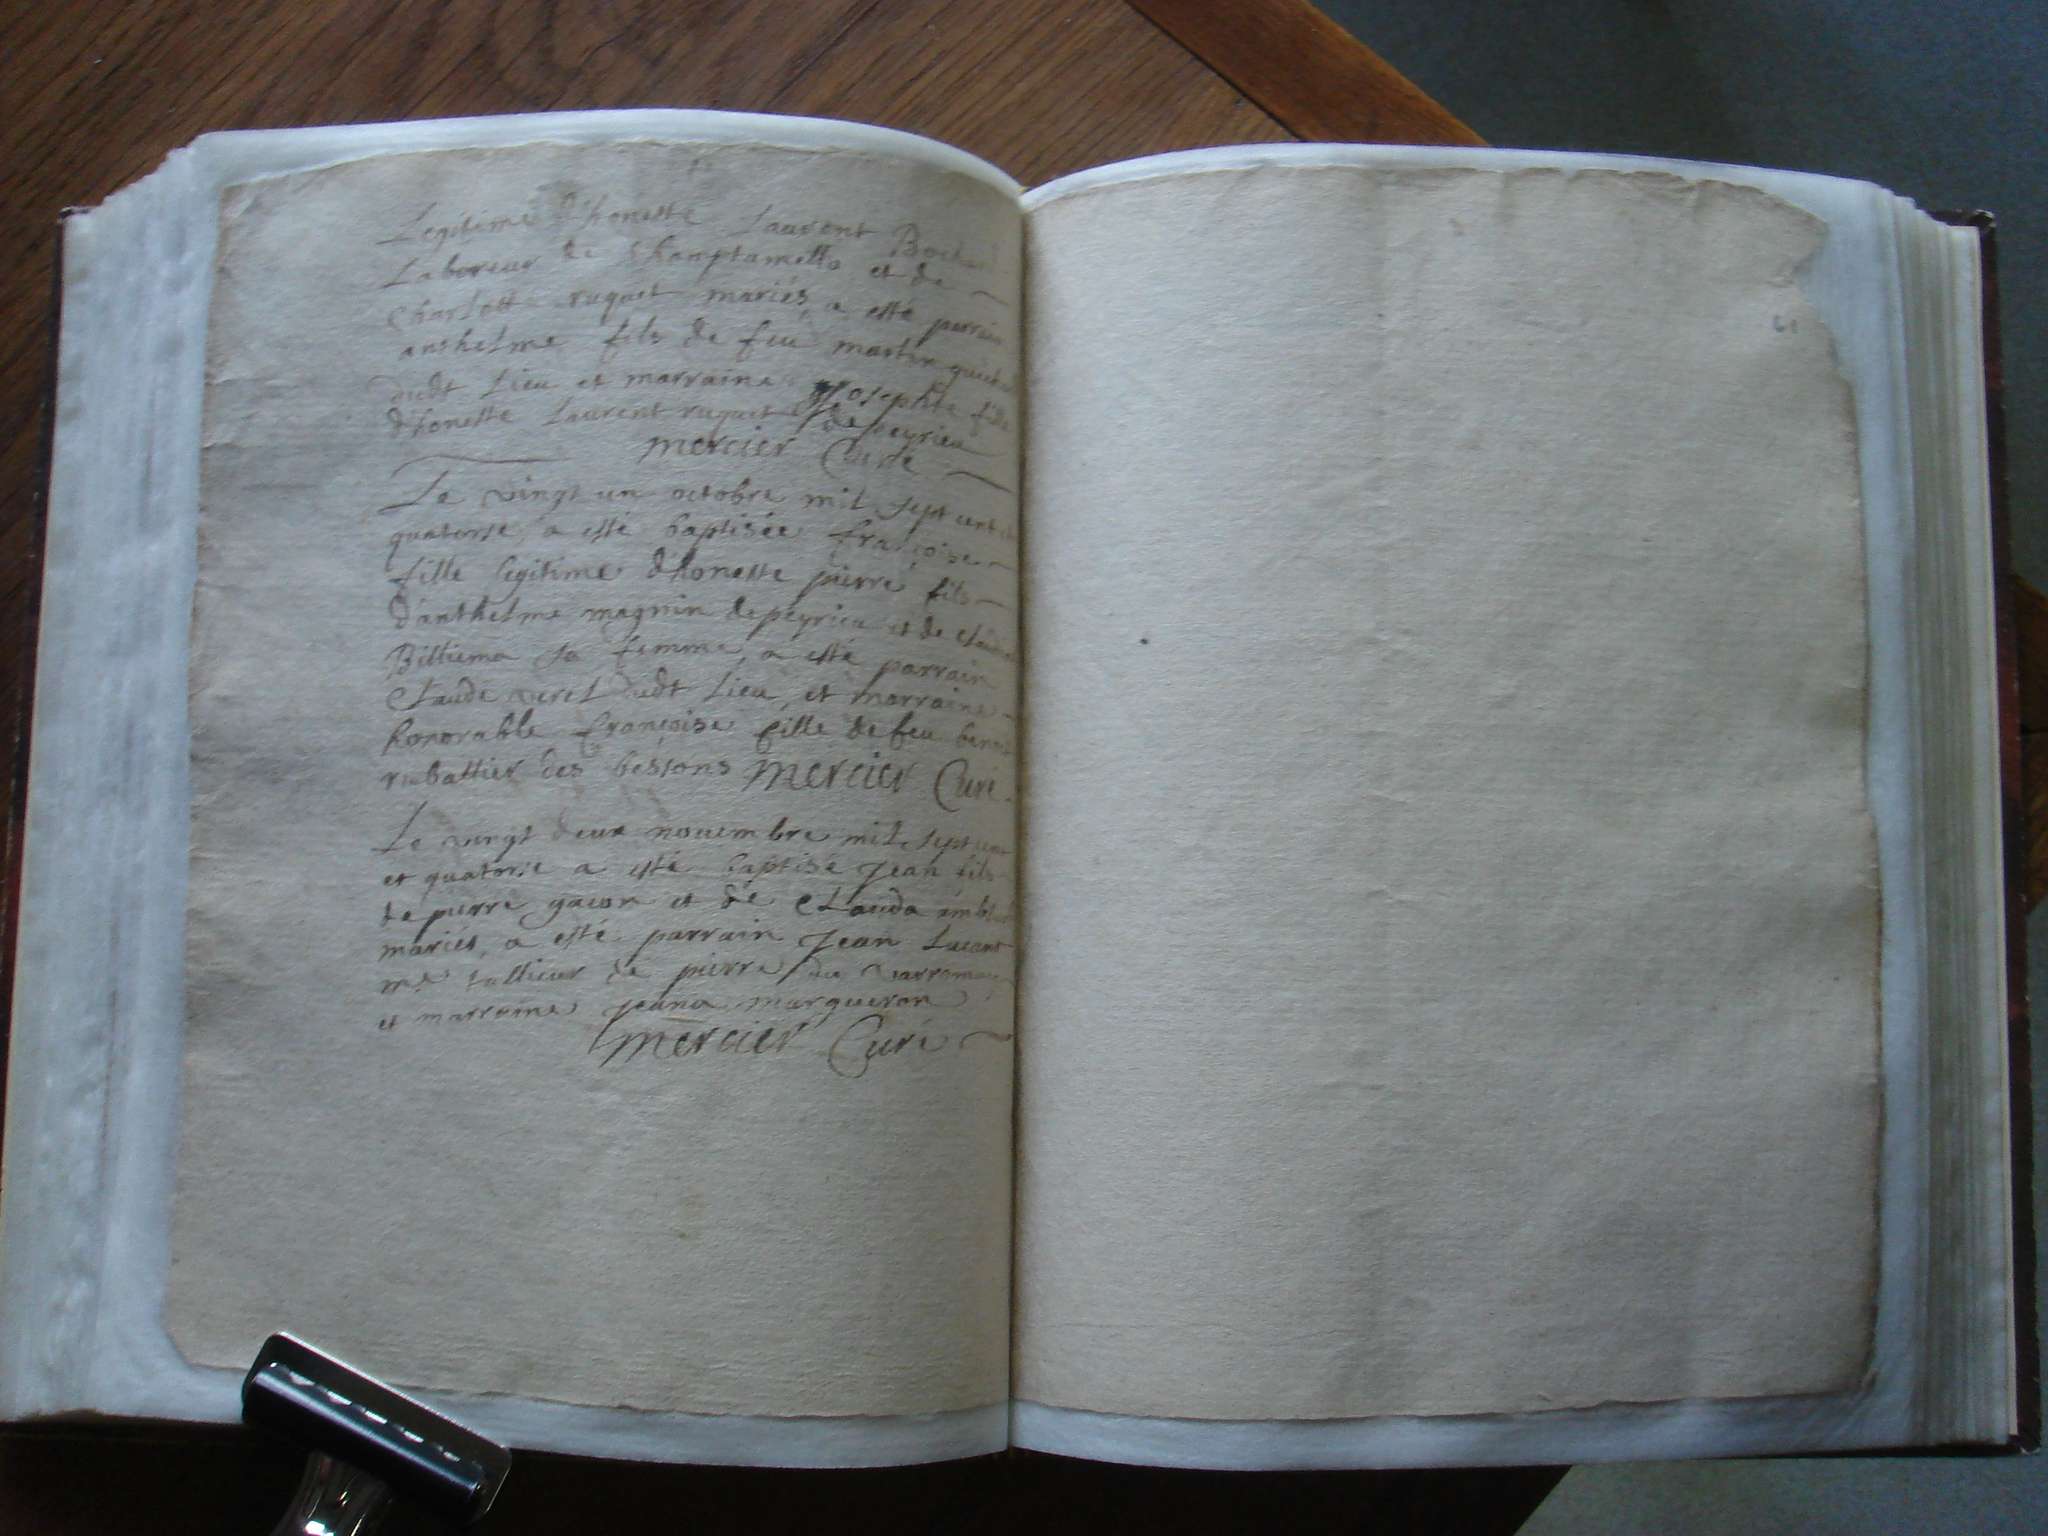 Legitime d'honeste Laurent
Laboreur de Champtamello et de
Charlotte ruguet mariés, a esté parrain
anthelme fils de feu martin
dudt Lieu et marraine Josephte fille
d'honeste Laurent ruguet de peyrieu
mercier Curé
Le vingt un octobre mil sept cent et
quatorse, a esté baptisée françoise
fille legitime d'honeste pierre fils
d'anthelme magnin de peyrieu et de
Billiema sa femme, a esté parrain
Claude dudt Lieu, et marraine
honorable françoise fille de feu benoit
rubattier des bessons mercier Curé
Le vingt deux nouembre mil sept cent
et quatorse a esté baptisé Jean fils
de pierre gacon et de Clauda
mariés, a esté parrain Jean
me tallieur de pierre
et marraine jeana margueron
mercier Curé
61